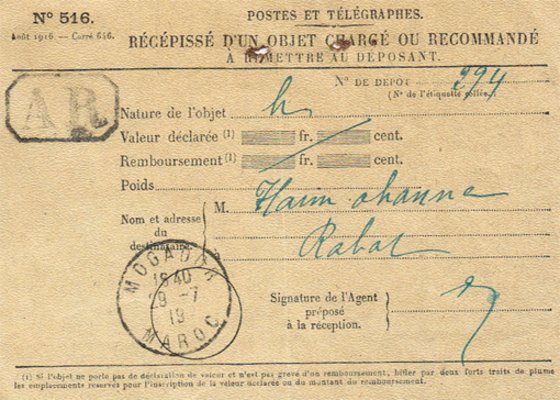 N° 516.
Août 1916. — Carré 646.
POSTES ET TÉLÉGRAPHES.
RÉCÉPISSÉ D'UN OBJET CHARGÉ OU RECOMMANDÉ
À REMETTRE AU DÉPOSANT.
N° DE DÉPÔT 294
(N° de l'étiquette collée.)
AR
Nature de l'objet
Valeur déclarée (1) fr. cent.
Remboursement (1) fr. cent.
Poids
Nom et adresse du destinataire.
M. Haim ohanna
Rabat
MOGADOR
1940
MAROC
Signature de l'Agent
préposé
à la réception.
(1) Si l'objet ne porte pas de déclaration de valeur et n'est pas grevé d'un remboursement, biffer par deux forts traits de plume
les emplacements réservés pour l'inscription de la valeur déclarée ou du montant du remboursement.